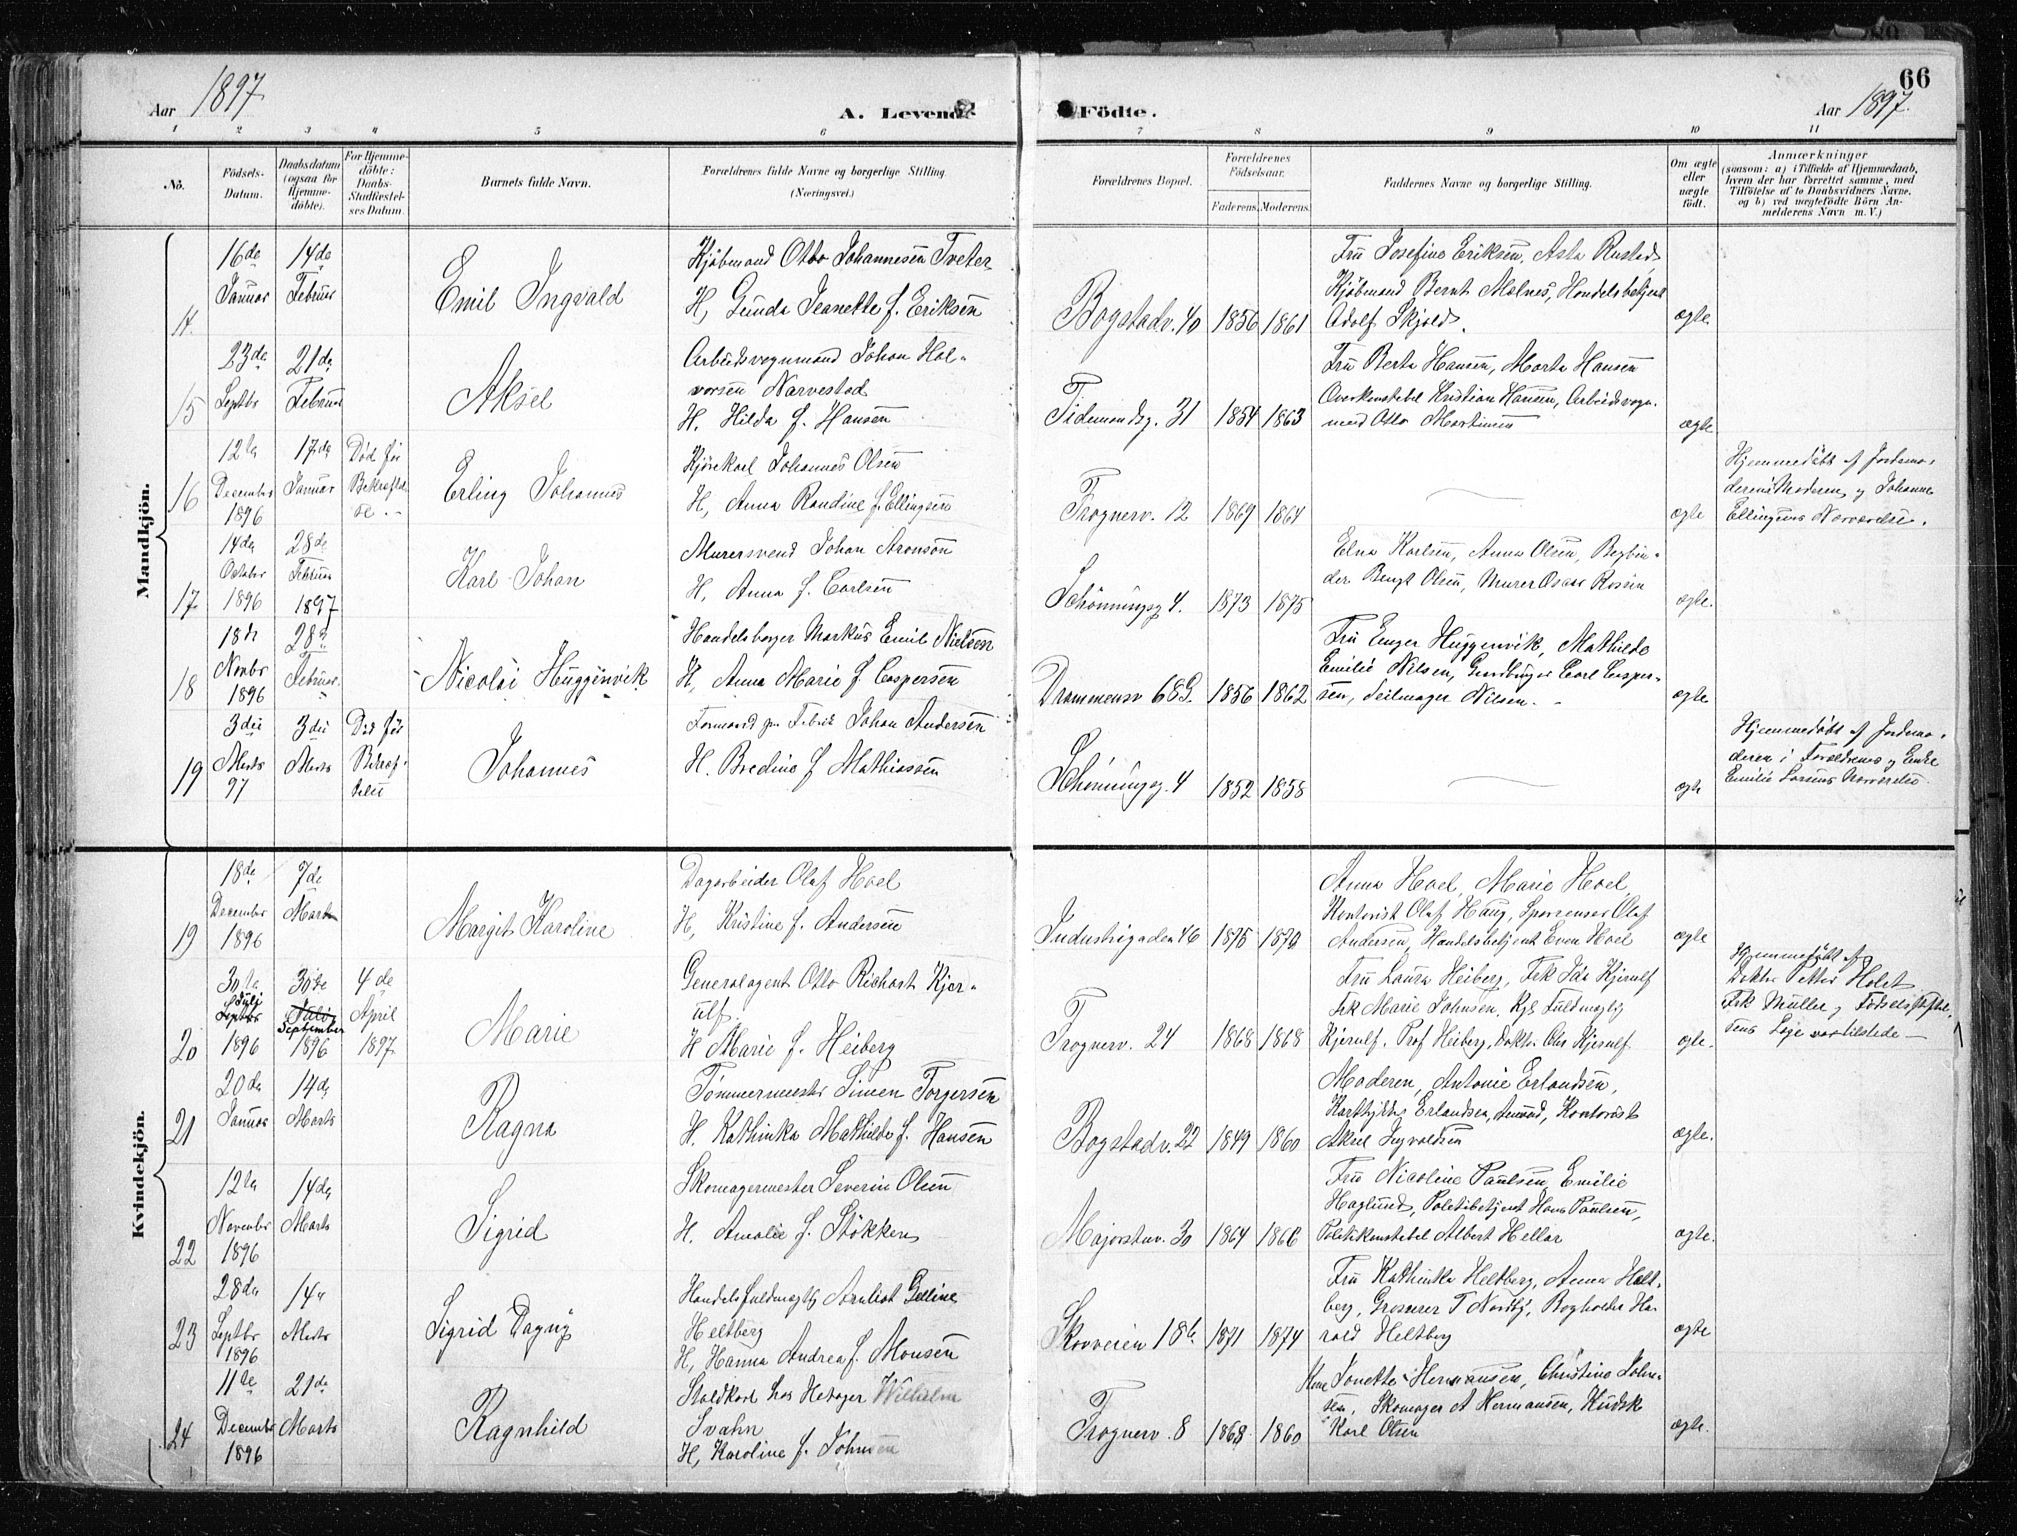 66
Aar 1897
A. Levende
Födte.
Aar 1897
1 2 3 4 5 6 7 8 9 10 11
No.
Födsels-
Datum.
Daabsdatum
(ogsaa for
Hjemme-
döbte).
For Hjemme-
döbte:
Daabs-
Stadfæstel-
ses Datum.
Barnets fulde Navn.
Forældrenes fulde Navne og borgerlige Stilling.
(Næringsvei.)
Forældrenes Bopæl.
Forældrenes
Födselsaar.
Faderens. Moderens.
Faddernes Navne og borgerlige Stilling.
Om ægte
eller
uægte
født.
Anmærkninger
(saasom: a) i Tilfælde af Hjemmedaab,
hvem der har forrettet samme, med
Tilföielse af to Daabsvidners Navne,
og b) ved uægtefödte Börn An-
melderens Navn m. V.)
Mandkjön.
14.
16de
Januar
14de
Februar
Emil Ingvald
Kjöbmand Otto Johannesen Tveter
H, Gunda Jeanette f. Eriksen
Bogstadv. 40
1856 1861
Fru Josefine Eriksen, Asta Rustad,
Kjöbmand Bernt Molnes, Handelsbetjent
Adolf Skjold.
ægte
15
23de
Septbr
21de
Februar
Aksel
Arbeidsvognmand Johan Hal-
vorsen Narvestad
H. Hilda f. Hansen
Tidemandsg. 31
1854 1863
Fru Berta Hansen, Marta Hansen
Overkonstabel Kristian Hansen, Arbeidsvogn-
mand Otto Martinsen
ægte
16
12te
December
1896
17de
Januar
Död för
Bekræftel
se.
Erling Johannes
Kjörekarl Johannes Olsen
H, Anna Randine f. Ellingsen
Frognerv. 12
1869 1864
ægte
Hjemmedöbt af Jordemo-
deren i Moderen og Johanne
Ellingsens Nærværelse.
17
14de
October
1896
28de
Februar
1897
Karl Johan
Murersvend Johan Aronson
H, Anna f. Carlsen
Schönningsg 4.
1873 1875
Elna Karlsen, Anna Olsen, Bogbin-
der Bengt Olsen, Murer Oscar Rosén
ægte.
18
18de
Novbr
1896
28de
Februar
Nicolai Huggenvik
Handelsborger Markus Emil Nielsen
H, Anna Marie f Caspersen
Drammensv 68G.
1856 1862
Fru Enger Huggenvik, Mathilde
Emilie Nilsen, Gaardbruger Carl Casper-
sen, Seilmager Nilsen.
ægte
19
3die
Marts
97
3die
Marts
Död för
Bekræf-
telse
Johannes
Formand paa Fabrik Johan Andersen
H. Bredine f Mathiassen
Schönningsg. 4
1852 1858
ægte
Hjemmedöbt af Jordemo-
deren i Forældrenes og Enke
Emilie Larsens Nærværelse
Kvindekjön.
19
18de
December
1896
7de
Marts
Margit Karoline
Dagarbeider Olaf Hoel
H, Kristine f. Andersen
Industrigaden 46
1875 1870
Anna Hoel, Marie Hoel,
Kontorist Olaf Haug, Sporvenser Olaf
Andersen, Handelsbetjent Even Hoel
ægte
20
30te
Juli
Septbr
1896
30de
Juli
September
1896
4de
April
1897
Marie
Generalagent Otto Richart Kjer-
ulf.
H Marie f. Heiberg
Frognerv. 24
1868 1868
Fru Laura Heiberg, Frk Ida Kjerulf
Frk Marie Johnsen, Kgl. Fuldmægtig
Kjerulf, Prof Heiberg, Doktor Ole Kjerulf.
ægte.
Hjemmedöbt af
Doktor Petter Holst
Frk Müller og Födselsstiftel-
sens Læge var tilstede
21
20de
Januar
14de
Marts
Ragna
Tömmermester Simen Torgersen
H. Kathinka Mathilde f. Hansen
Bogstadv. 22
1849 1860
Moderen, Antonie Erlandsen,
Erlandsen, Kontorist
Aksel Ingvaldsen
ægte.
22
12te
November
1896
14de
Marts
Sigrid
Skomagermester Severin Olsen
H. Amalie f. Stökken
Majorstuv. 30
1864 1866
Fru Nicoline Paulsen, Emilie
Haglund, Politibetjent Hans Paulsen,
Politikonstabel Albert Hellar
ægte.
23
28de
Septbr
1896
14de
Marts
Sigrid Dagny
Handelsfuldmægtig Arnliot Gelline
Heltberg
H, Hanna Andrea f. Monsen
Skovveien 18b
1871 1874
Fru Kathinka Heltberg, Anna Helt-
berg, Grosserer T Nordby, Bogholder Ha-
rald Heltberg
ægte
24
11te
December
1896
21de
Marts
Ragnhild
Staldkarl hos Hetager Wilhelm
Svahn
H, Karoline f. Johnsen
Frognerv. 8
1868 1860
Kone Jonette Hermansen, Christine John-
sen, Skomager A Hermansen, Kudsk
Karl Olsen
ægte.